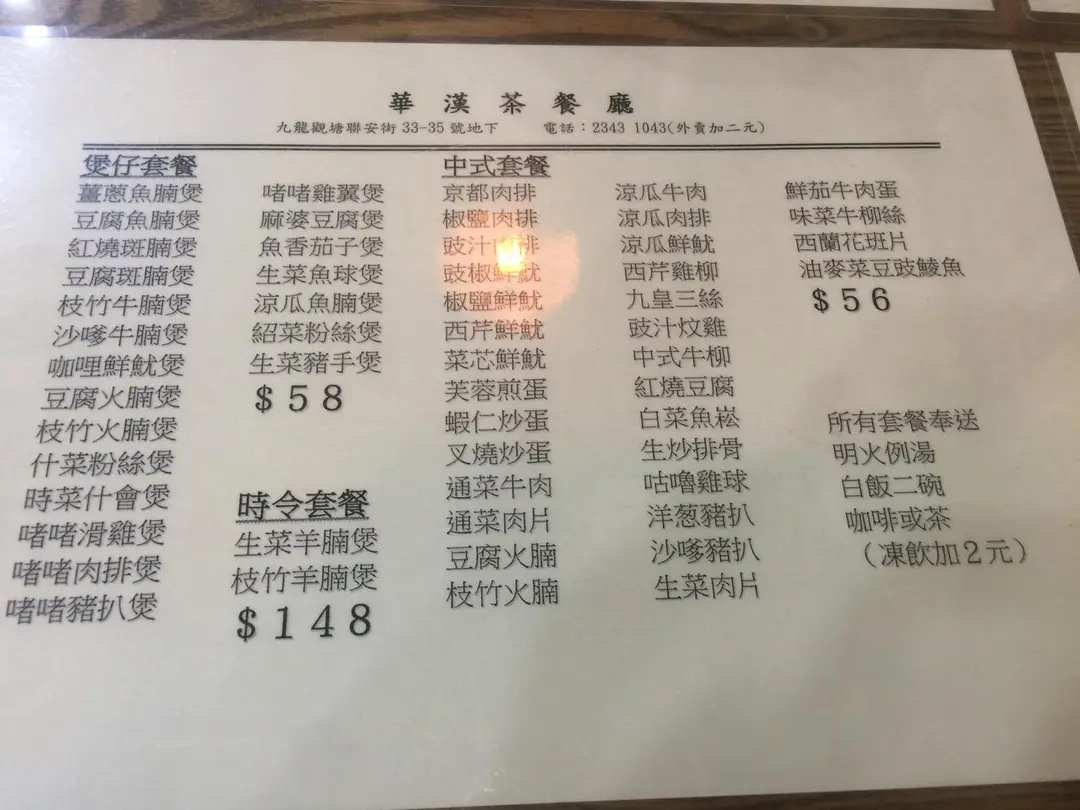 華漢茶餐廳
九龍觀塘聯安街 33-35 號地下 電話：2343 1043(外賣加二元)
煲仔套餐
薑蔥魚腩煲
豆腐魚腩煲
紅燒斑腩煲
豆腐斑腩煲
枝竹牛腩煲
沙嗲牛腩煲
咖哩鮮魷煲
豆腐火腩煲
枝竹火腩煲
什菜粉絲煲
時菜什會煲
啫啫滑雞煲
啫啫肉排煲
啫啫豬扒煲
啫啫雞翼煲
麻婆豆腐煲
魚香茄子煲
生菜魚球煲
涼瓜魚腩煲
紹菜粉絲煲
生菜豬手煲
$58
時令套餐
生菜羊腩煲
枝竹羊腩煲
$148
中式套餐
京都肉排
椒鹽肉排
豉汁肉排
豉椒鮮魷
椒鹽鮮魷
西芹鮮魷
菜芯鮮魷
芙蓉煎蛋
蝦仁炒蛋
叉燒炒蛋
通菜牛肉
通菜肉片
豆腐火腩
枝竹火腩
涼瓜牛肉
涼瓜肉排
涼瓜鮮魷
西芹雞柳
九皇三絲
豉汁炆雞
中式牛柳
紅燒豆腐
白菜魚崧
生炒排骨
咕嚕雞球
洋葱豬扒
沙嗲豬扒
生菜肉片
鮮茄牛肉蛋
味菜牛柳絲
西蘭花班片
油麥菜豆豉鯪魚
$56
所有套餐奉送
明火例湯
白飯二碗
咖啡或茶
（凍飲加２元）